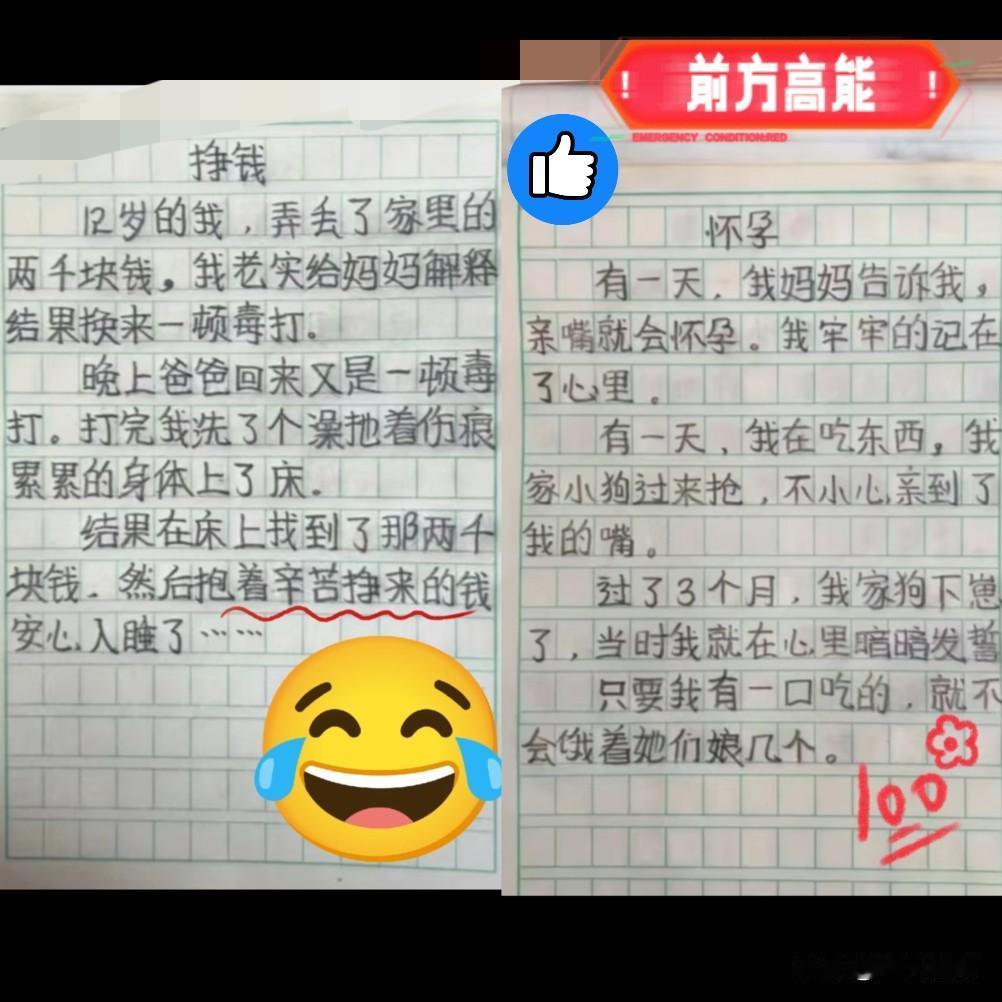 挣钱
12岁的我，弄丢了家里的
两千块钱。我老实给妈妈解释
结果换来一顿毒打.
晚上爸爸回来又是一顿毒
打。打完我洗了个澡拖着伤痕
累累的身体上了床.
结果在床上找到了那两千
块钱.然后抱着辛苦挣来的钱
安心入睡了……
! 前方高能 !
EMERGENCY CONDITION:RED
怀孕
有一天，我妈妈告诉我，
亲嘴就会怀孕。我牢牢的记在
了心里。
有一天，我在吃东西，我
家小狗过来抢，不小心亲到了
我的嘴。
过了3个月，我家狗下崽
了，当时我就在心里暗暗发誓
只要我有一口吃的，就不
会饿着她们娘几个。
100